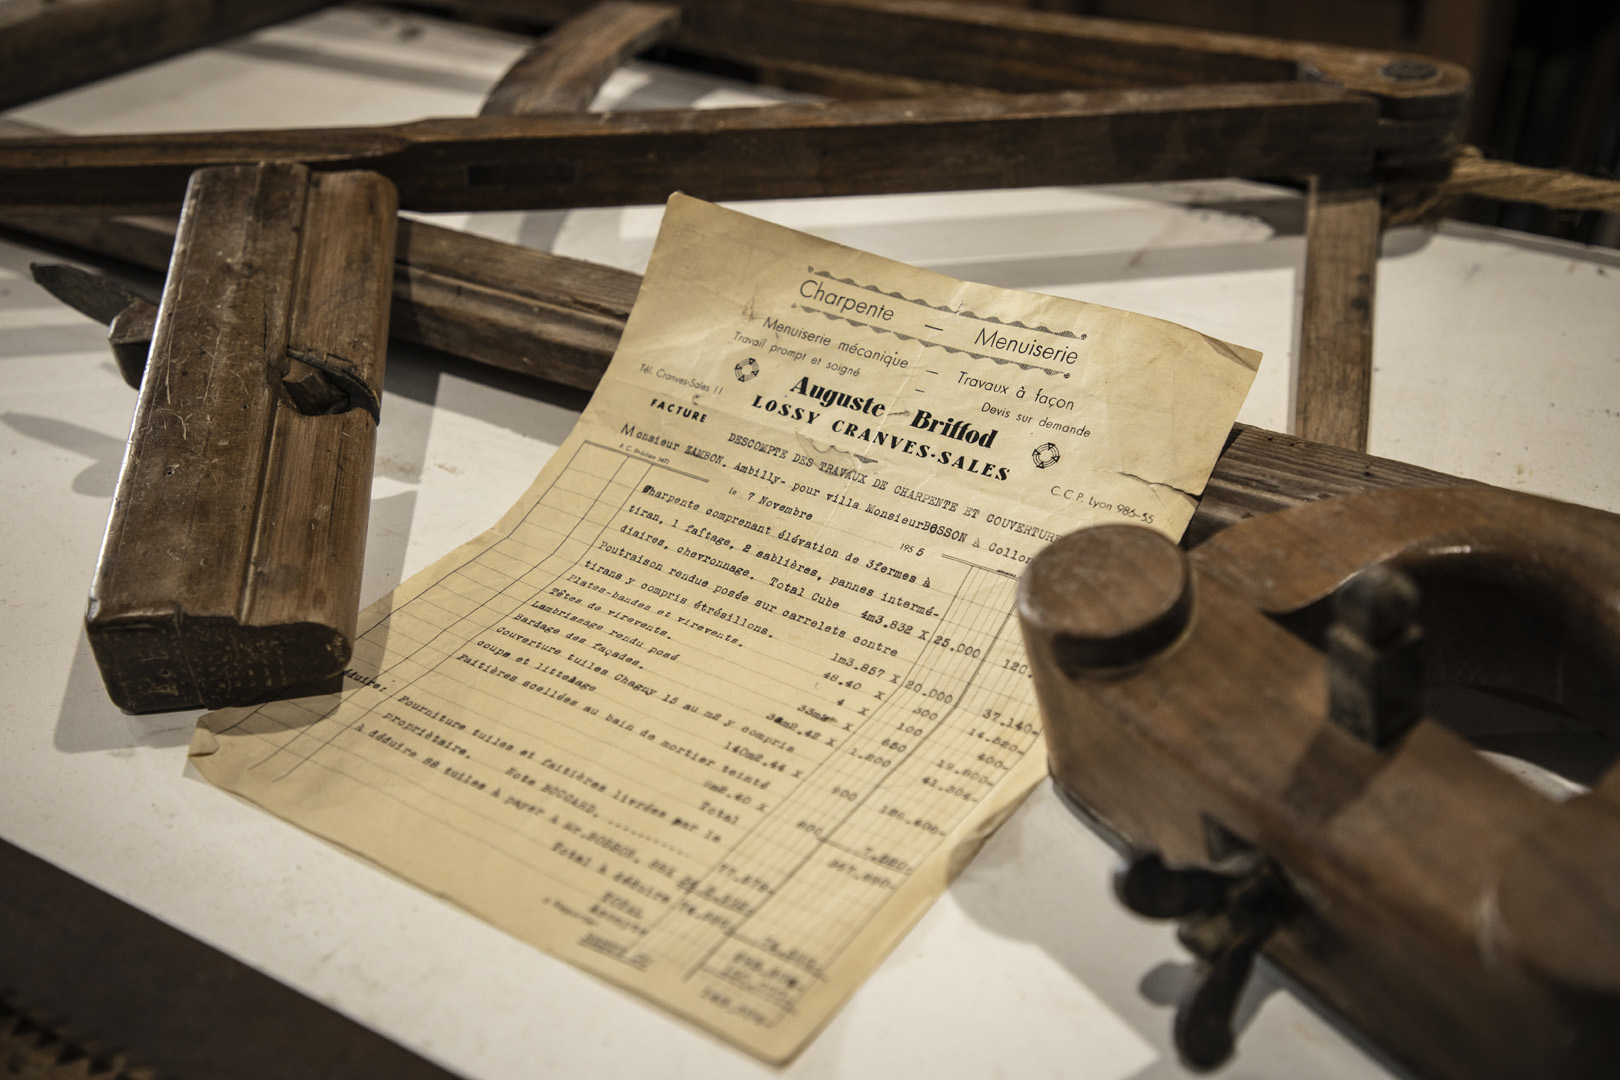 Charpente — Menuiserie
Menuiserie mécanique — Travaux à façon
Travail prompt et soigné - Devis sur demande
Auguste Briffod
LOSSY CRANVES-SALES
Tél. Cranves-Sales 11
C.C.P. Lyon 986-55
FACTURE
DESCOMPTE DES TRAVAUX DE CHARPENTE ET COUVERTURE
Monsieur ZAMBON, Ambilly- pour villa MonsieurBOSSON à Collon
le 7 Novembre 1955
Charpente comprenant élévation de 3fermes à
tiran, 1 faîtage, 2 sablières, pannes intermé-
diaires, chevronnage. Total Cube 4m3.832 X 25.000 120.
Poutraison rendue posée sur carrelets contre
tirans y compris étrésillons. 1m3.857 X 20.000 37.140-
Plates-bandes et virevents. 48.40 X 300 14.520-
Têtes de virevents. 4 X 100 400-
Lambrissage rendu posé 33m² X 600
Bardage des façades. X 1.200
Couverture tuiles Chagny 15 au m2 y compris
coupe et littelage 140m2.44 X 900
Faitières scellées au bain de mortier teinté
9m2.40 X 800
Total
duire:
Fourniture tuiles et faîtières livrées par le
propriétaire. Note BOCCARD,
A déduire 88 tuiles à payer à Mr.BOSSON,
Total à déduire
TOTAL
Acompte